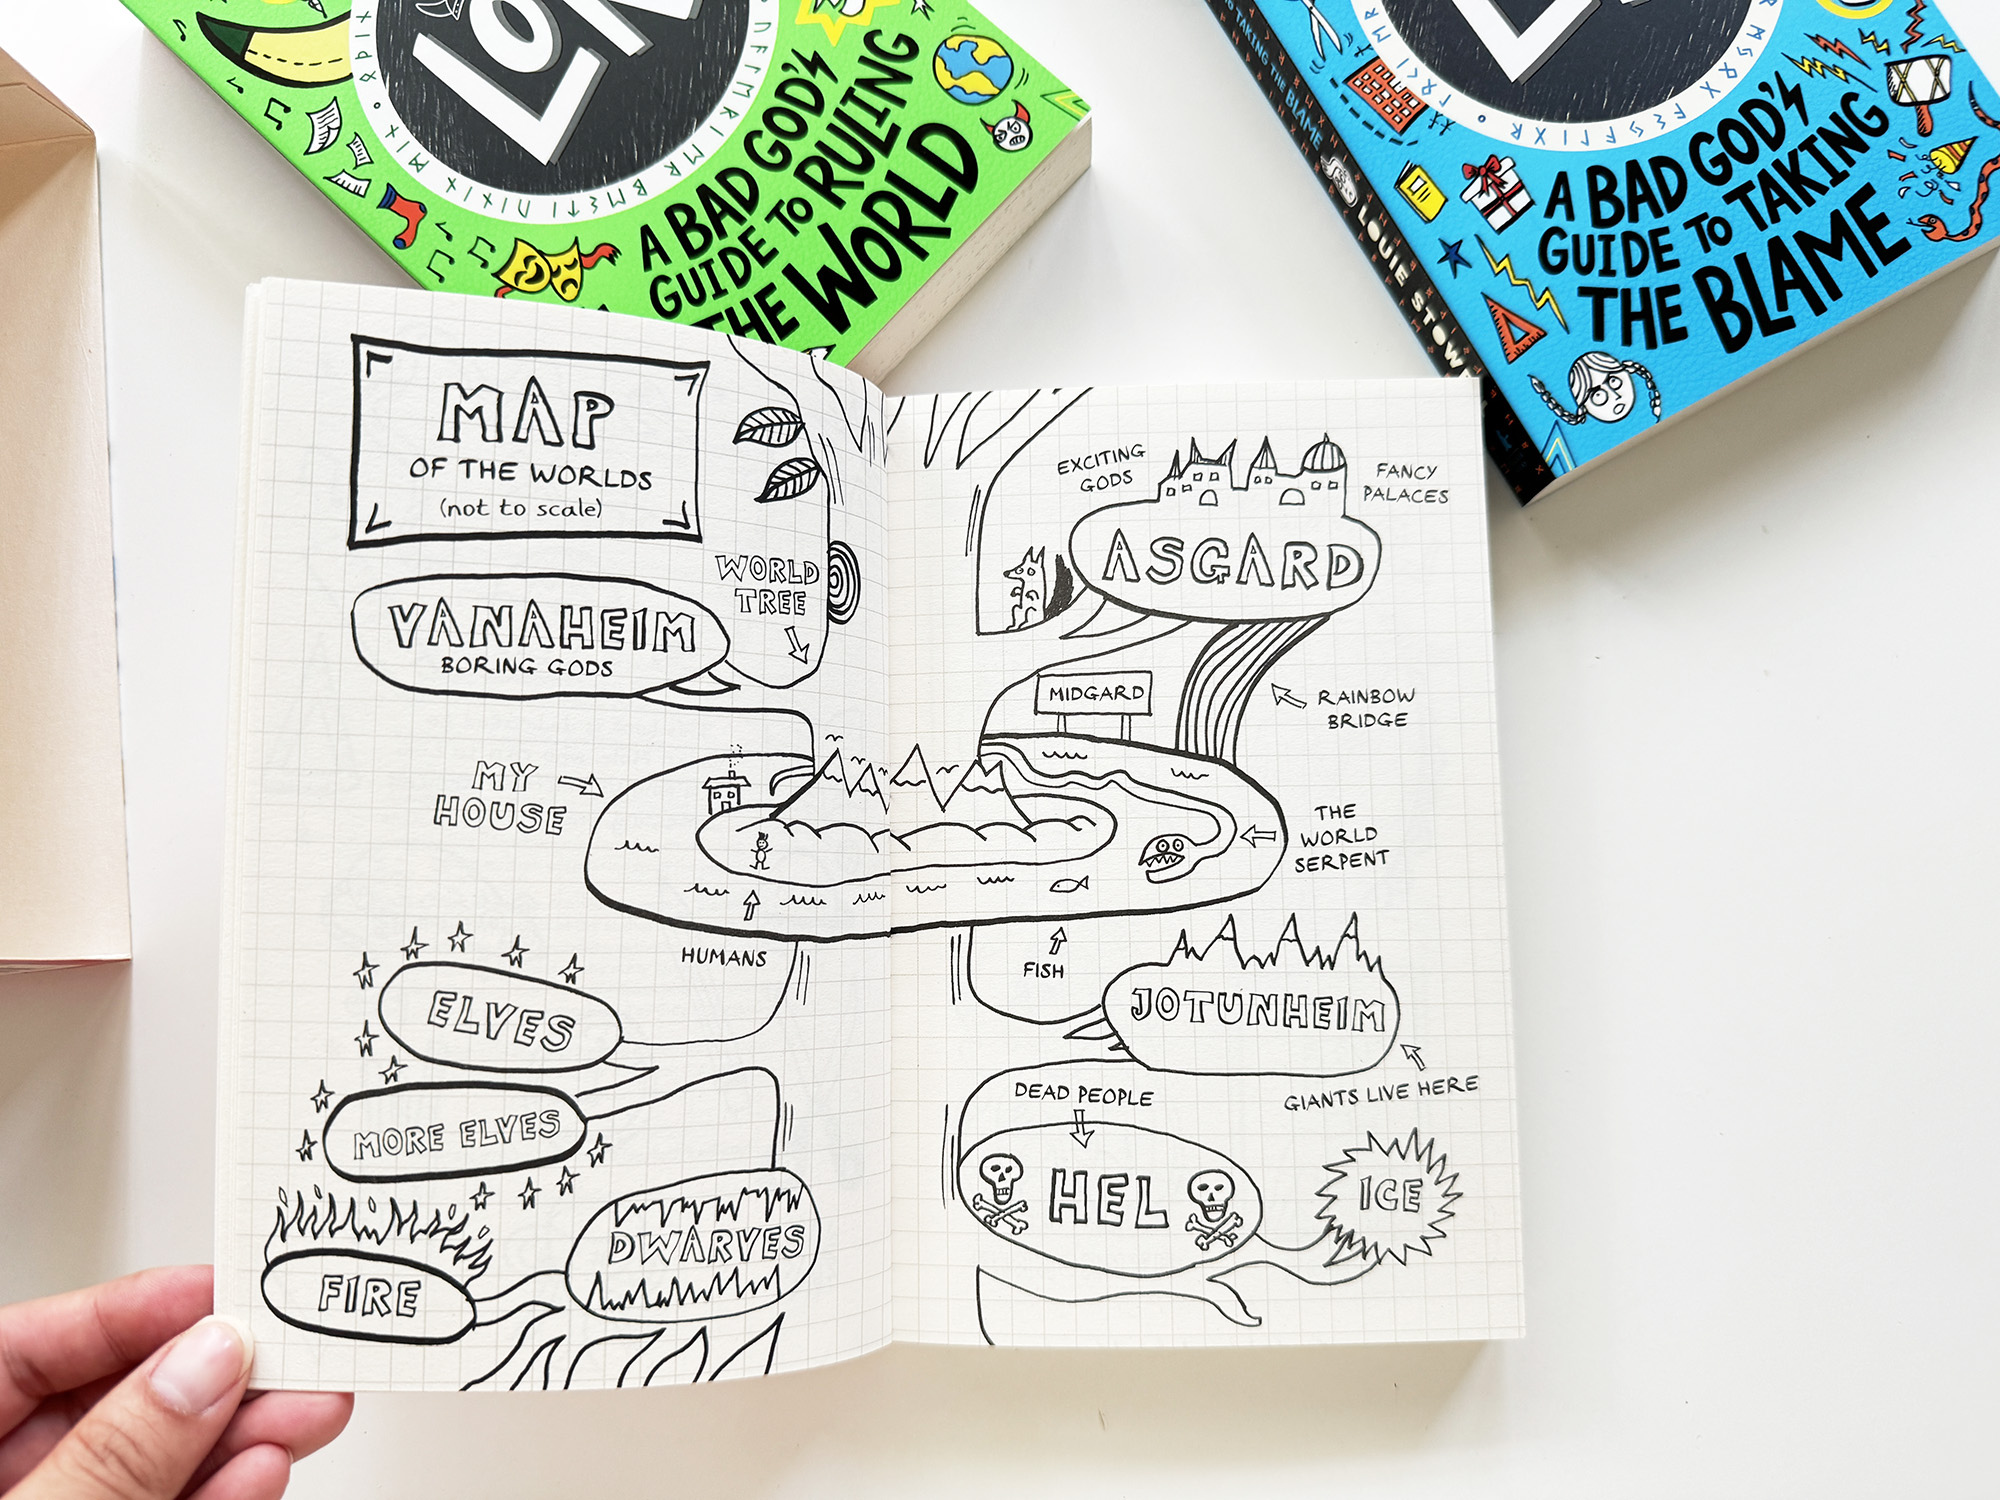 A BAD GOD'S
GUIDE TO RULING
THE WORLD
TAKING THE BLAME
LOUIE STOW
A BAD GOD'S
GUIDE TO TAKING
THE BLAME
MAP
OF THE WORLDS
(not to scale)
WORLD
TREE
VANAHEIM
BORING GODS
MY
HOUSE
HUMANS
ELVES
MORE ELVES
FIRE
DWARVES
EXCITING
GODS
FANCY
PALACES
ASGARD
MIDGARD
RAINBOW
BRIDGE
THE
WORLD
SERPENT
FISH
JOTUNHEIM
GIANTS LIVE HERE
DEAD PEOPLE
HEL
ICE